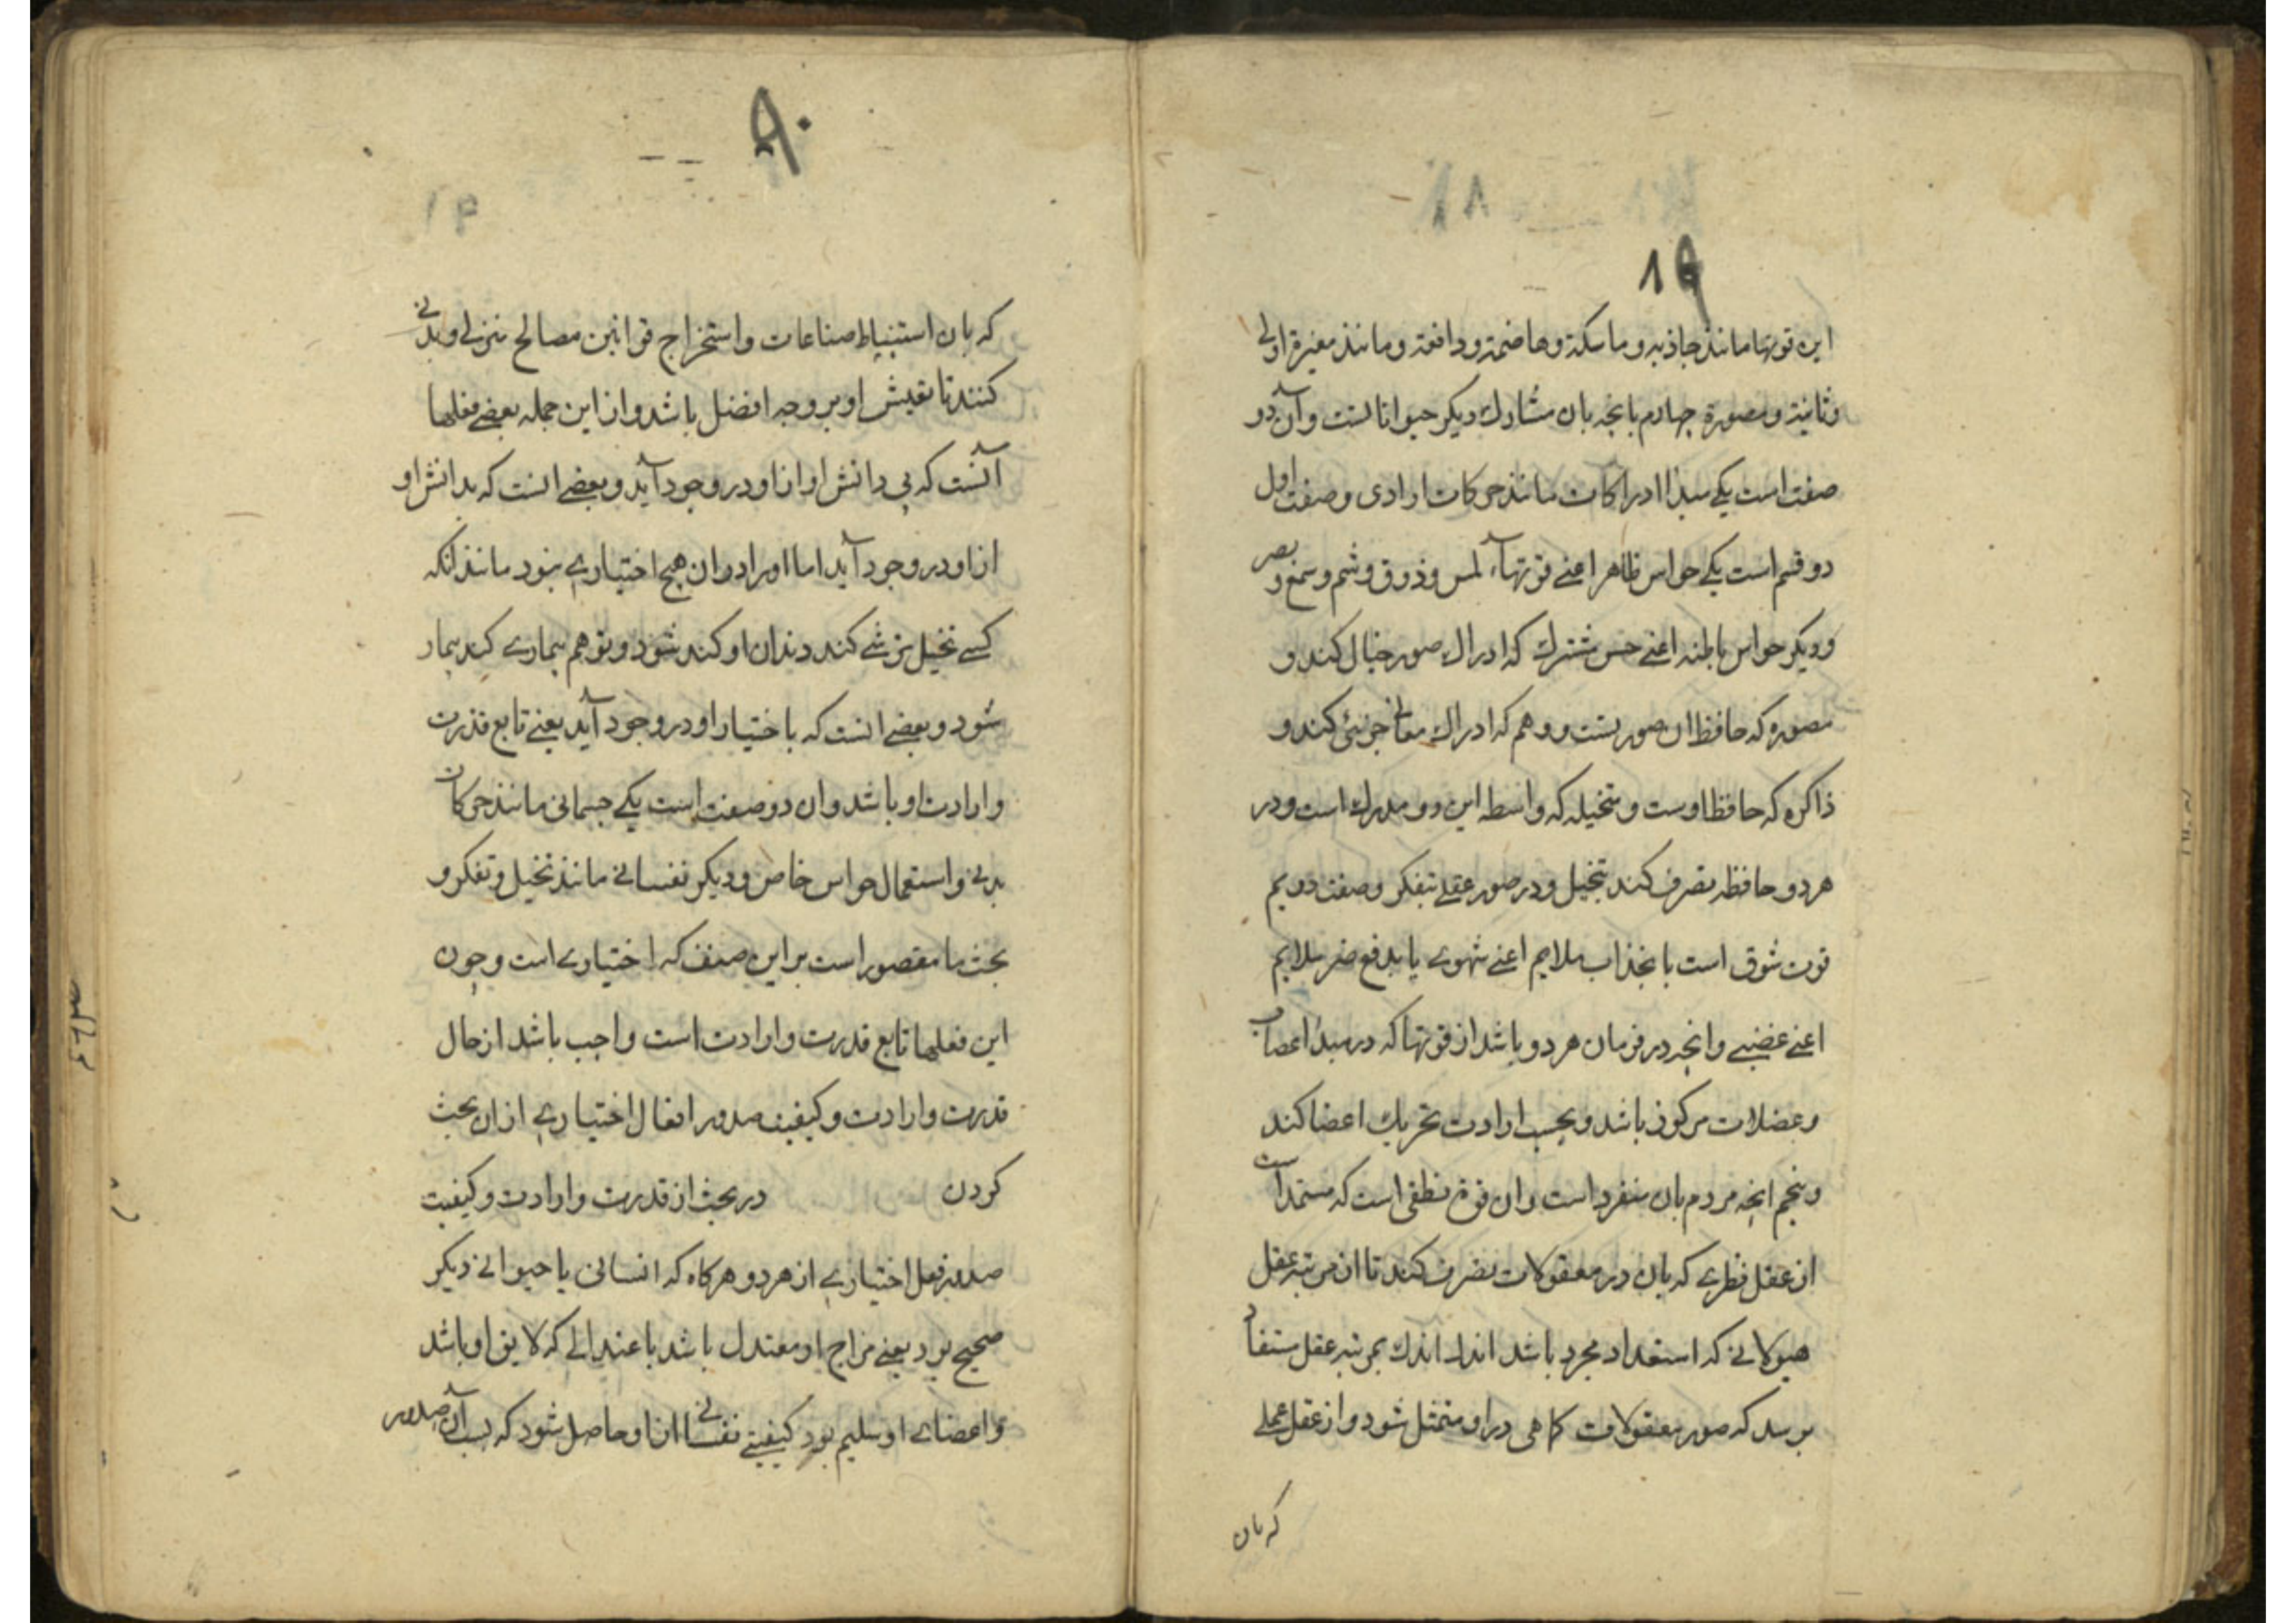 ۱۹
این قوتها مانند جاذبه و ماسکة و هاضمة و دافعة و مانند مغیرة اولی
و ثانیة و مصورة چهارم بانچه بان مشارك دیکر حیواناتست و آن دو
صفت است یکی مبدا ادراکات مانند حرکات ارادی و صفت اول
دو قسم است یکی حواس ظاهر اعنی قوتهاء لمس و ذوق و شم و سمع و بصر
و دیکر حواس باطنه اعنی حس مشترك که ادراك صور خیال کند و
مصوره که حافظ ان صورتست و وهم که ادراك معانی جزئی کند و
ذاکره که حافظ اوست و متخیله که واسطه این دو مدرك است و در
هر دو حافظه تصرف کند بتخیل و در صور عقلی بتفکر و صفت دویم
قوت شوق است بانجذاب ملایم اعنی شهوی یا بدفع غیر ملایم
اعنی غضبی و انچه در فرمان هر دو باشد از قوتها که در مبدا اعصاب
و عضلات مرکوز باشد و بحسب ارادت تحریك اعضا کند
و پنجم انچه مردم بان منفرد است و ان قوة نطقی است که مستمد است
از عقل نظری که بان در معقولات تصرف کند تا از مرتبه عقل
هیولانی که استعداد مجرد باشد اندك اندك بمرتبه عقل مستفاد
برسد که صور معقولات کما هی در او متمثل شود و از عقل عملی
که بان
۹۰
که بان استنباط صناعات و استخراج قوانین مصالح منزلی و بدنی
کنند تا تعیش او بر وجه افضل باشد و از این جمله بعضی فعلها
آنست که بی دانش او از او در وجود آید و بعضی انست که بدانش او
از او در وجود آید اما او را در ان هیچ اختیاری نبود مانند انکه
کسی تخیل ترشی کند دندان او کند شود و توهم بیماری کند بیمار
شود و بعضی انست که باختیار او در وجود آید یعنی تابع قدرت
و ارادت او باشد و ان دو صنفست یکی جسمانی مانند حرکات
بدنی و استعمال حواس خاص و دیکر نفسانی مانند تخیل و تفکر و
بحث ما مقصور است بر این صنف که اختیاری است و چون
این فعلها تابع قدرت و ارادت است واجب باشد از حال
قدرت و ارادت و کیفیت صدور افعال اختیاری از ان بحث
کردن در بحث از قدرت و ارادت و کیفیت
صدور فعل اختیاری از هر دو هرکاه که انسانی یا حیوانی دیکر
صحیح بود یعنی مزاج او معتدل باشد باعتدالی که لایق او باشد
و اعضای او سلیم بود کیفیتی نفسانی از او حاصل شود که بسبب آن صدور